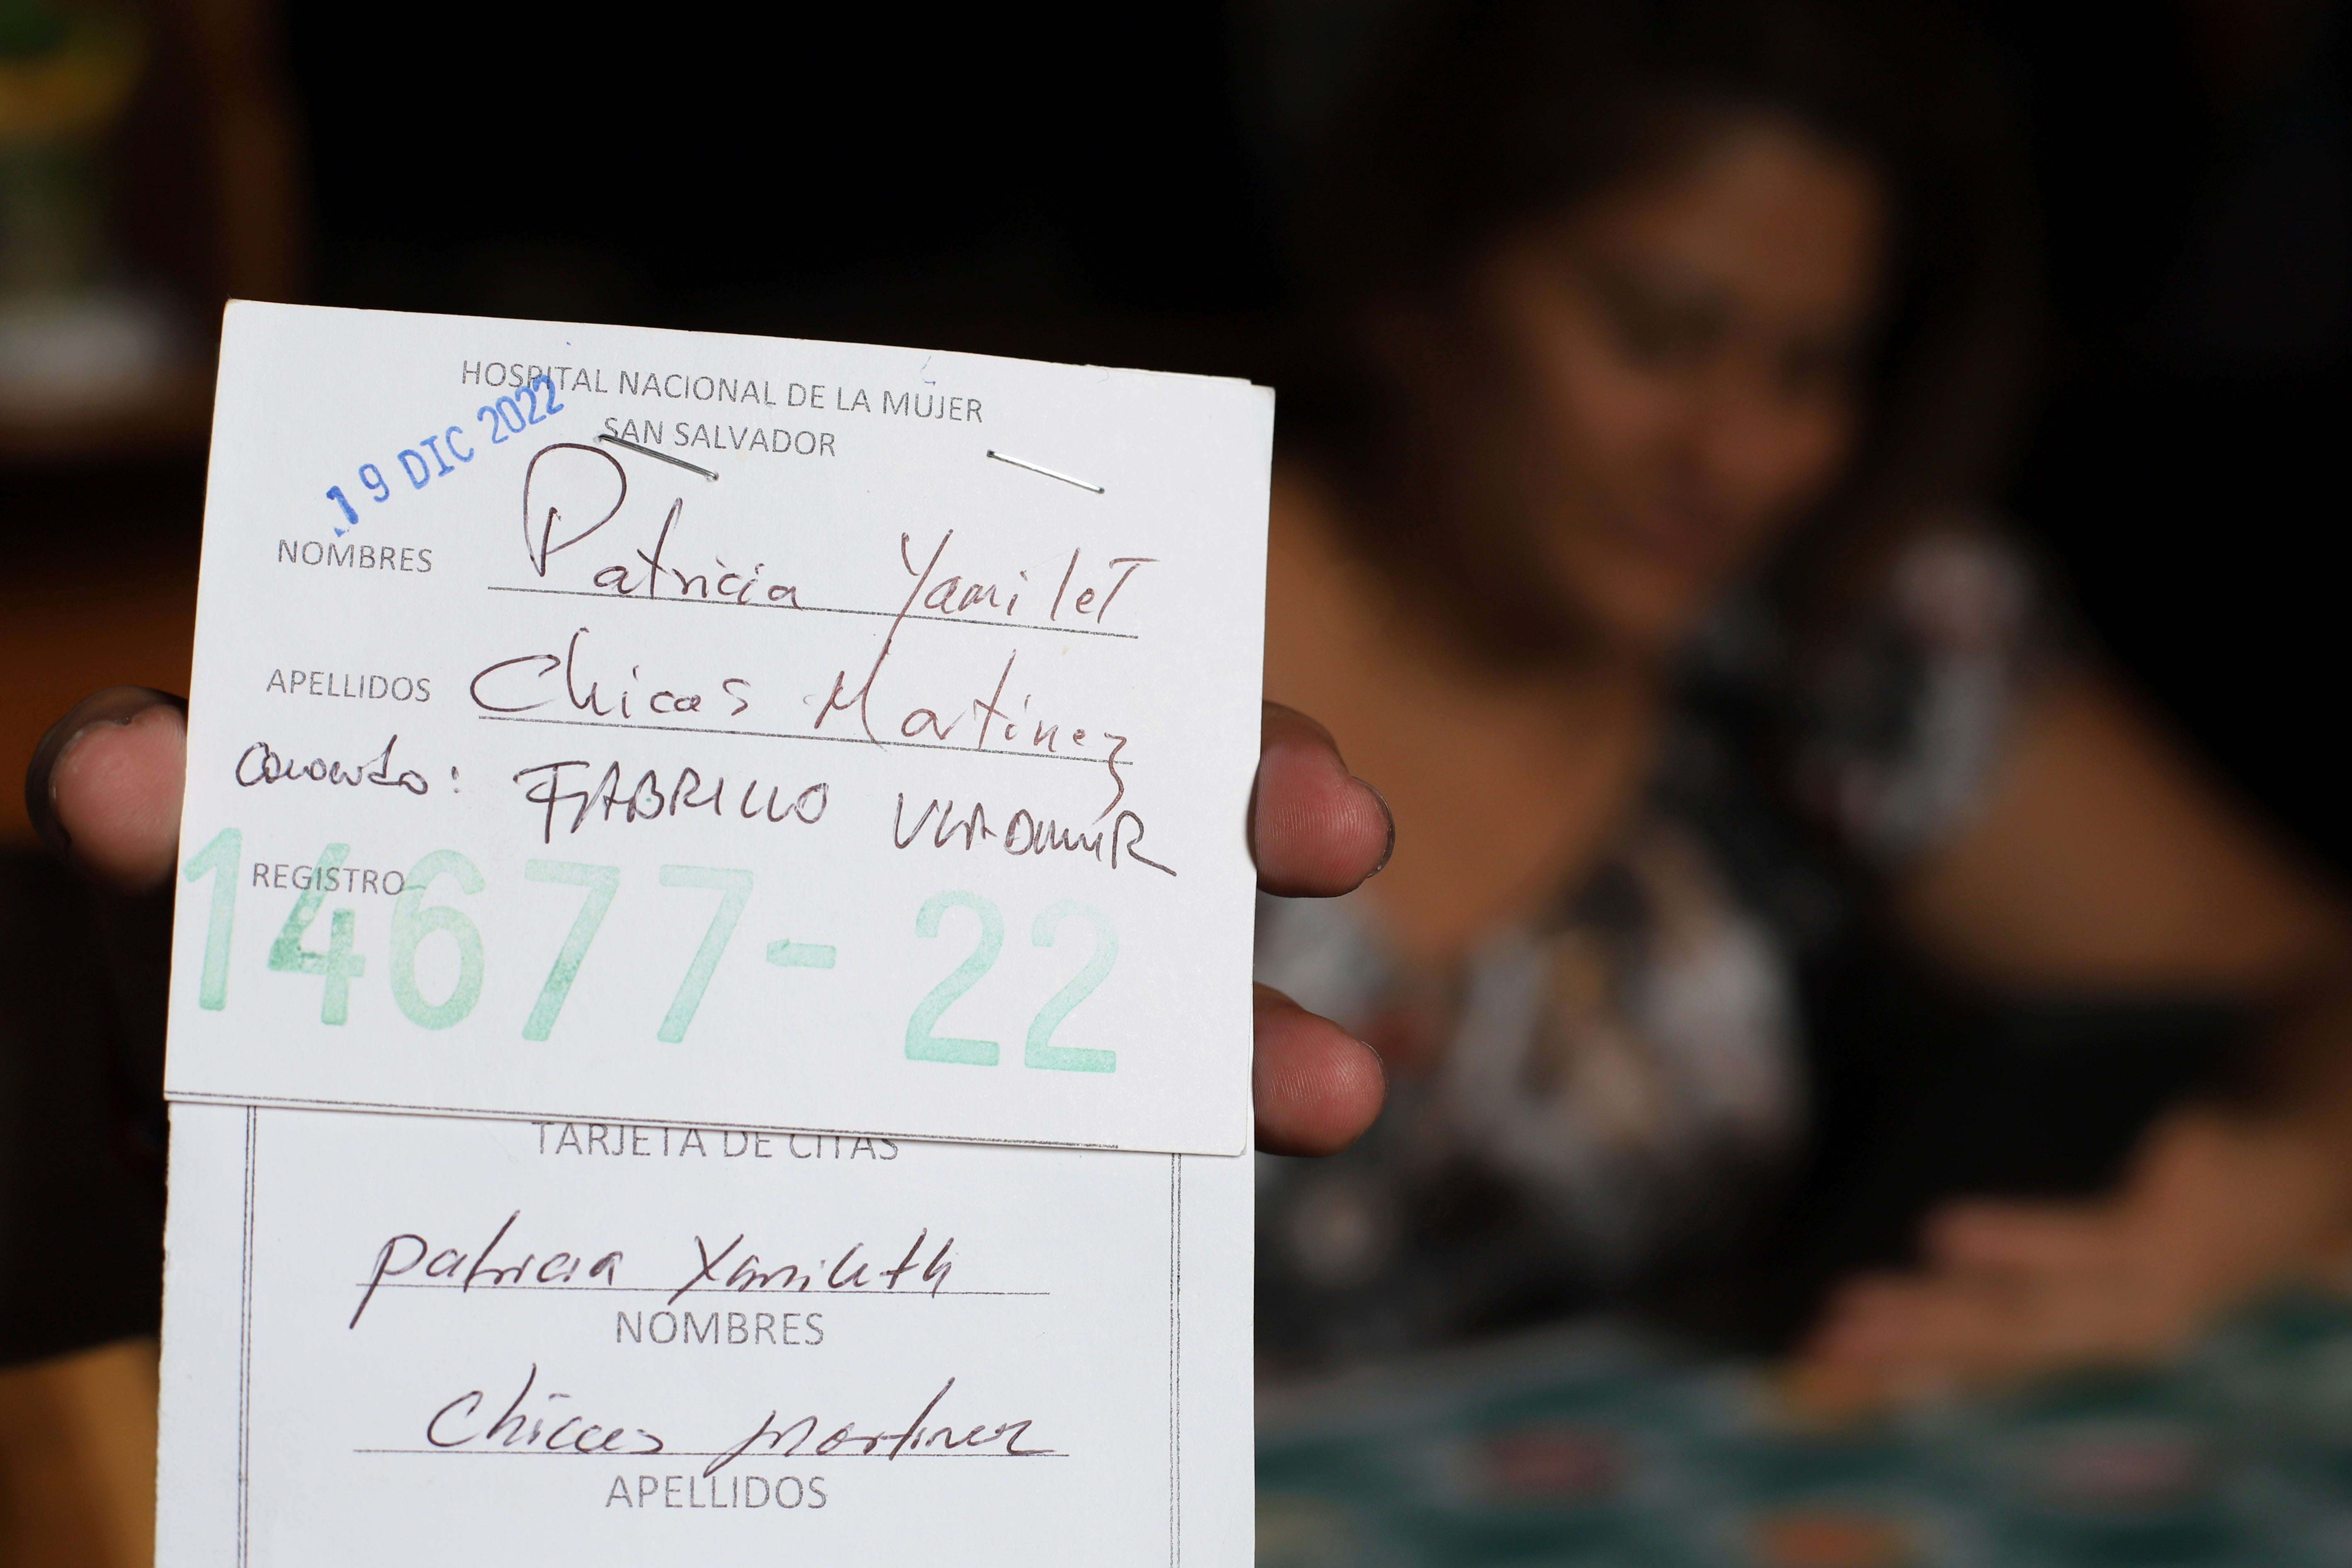 HOSPITAL NACIONAL DE LA MUJER
SAN SALVADOR
19 DIC 2022
NOMBRES Patricia Yamilet
APELLIDOS Chicas Martinez
VLADIMIR
REGISTRO
14677-22
TARJETA DE CITAS
patricia Yamileth
NOMBRES
Chicas Martinez
APELLIDOS